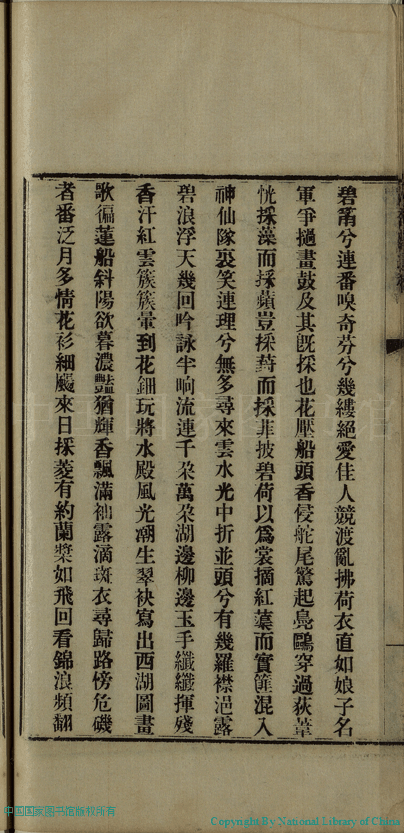 碧筩兮連番嗅奇芬兮幾縷絕愛佳人競渡亂拂荷衣直如娘子名
軍爭撾畫鼓及其既採也花壓船頭香侵舵尾驚起鳧鷗穿過荻葦
恍採藻而採蘋豈採葑而採菲披碧荷以爲裳摘紅蕖而實筐混入
神仙隊裏笑連理兮無多尋來雲水光中折並頭兮有幾羅襟浥露
碧浪浮天幾回吟詠半晌流連千朶萬朶湖邊柳邊玉手纖纖揮殘
香汗紅雲簇簇暈到花鈿玩將水殿風光潮生翠袂寫出西湖圖畫
歌徧蓮船斜陽欲暮濃豔猶輝香飄滿袖露滴斑衣尋歸路傍危磯
者番泛月多情花衫細颺來日採菱有約蘭槳如飛回看錦浪頻翻
中国国家图书馆版权所有
Copyright By National Library of China